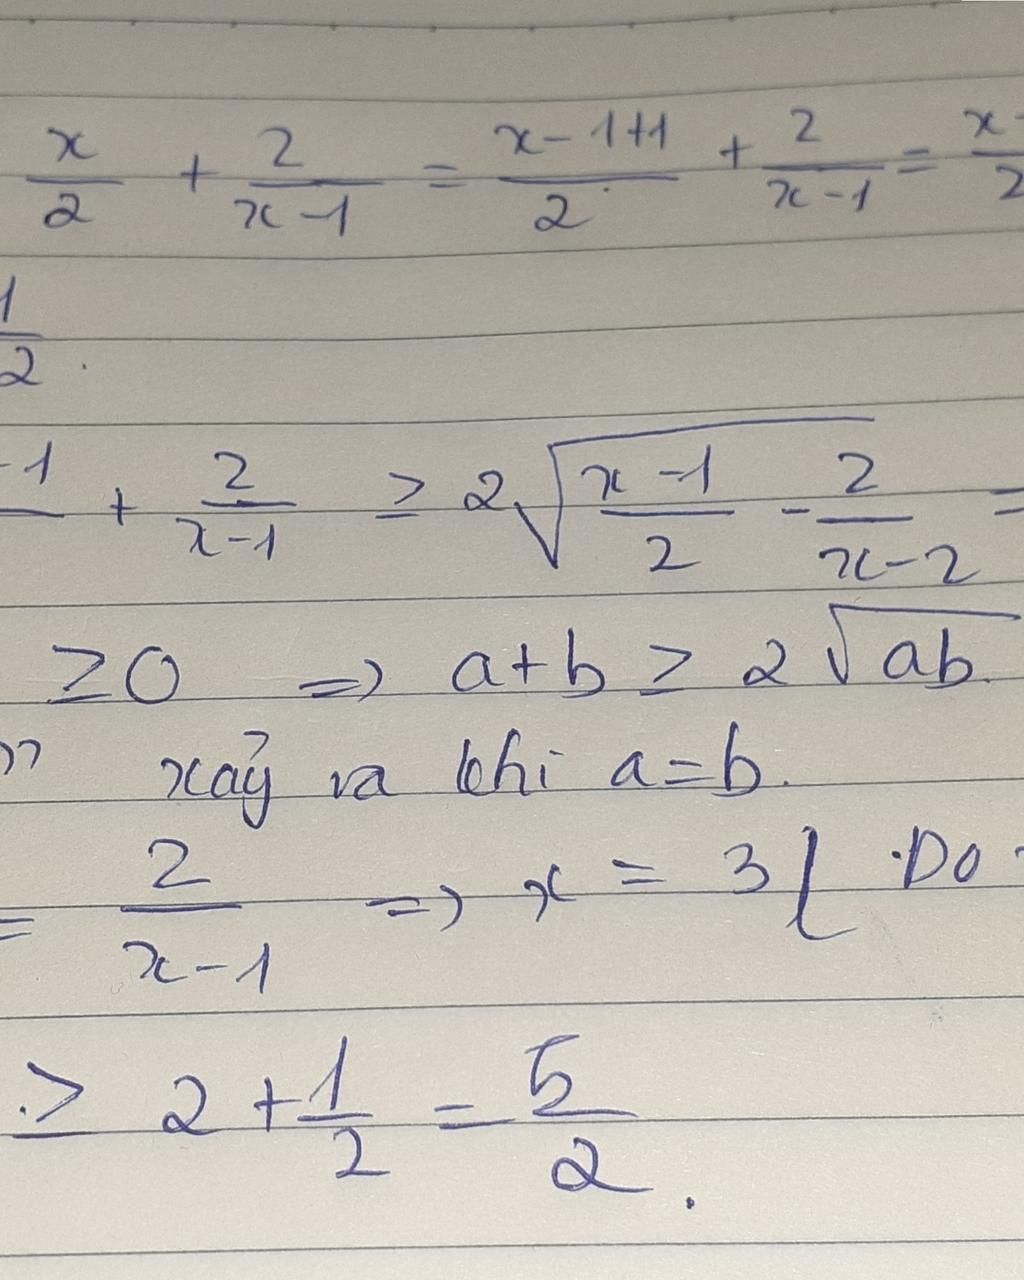 x/2 + 2/(x-1) = (x-1+1)/2 + 2/(x-1) = x-/2
1/2 .
-1 + 2/(x-1) ≥ 2√((x-1)/2 - 2/(x-2)) =
≥0 => a+b ≥ 2√ab.
" xảy ra khi a=b.
= 2/(x-1) => x = 3 ( Do
≥ 2 + 1/2 = 5/2 .